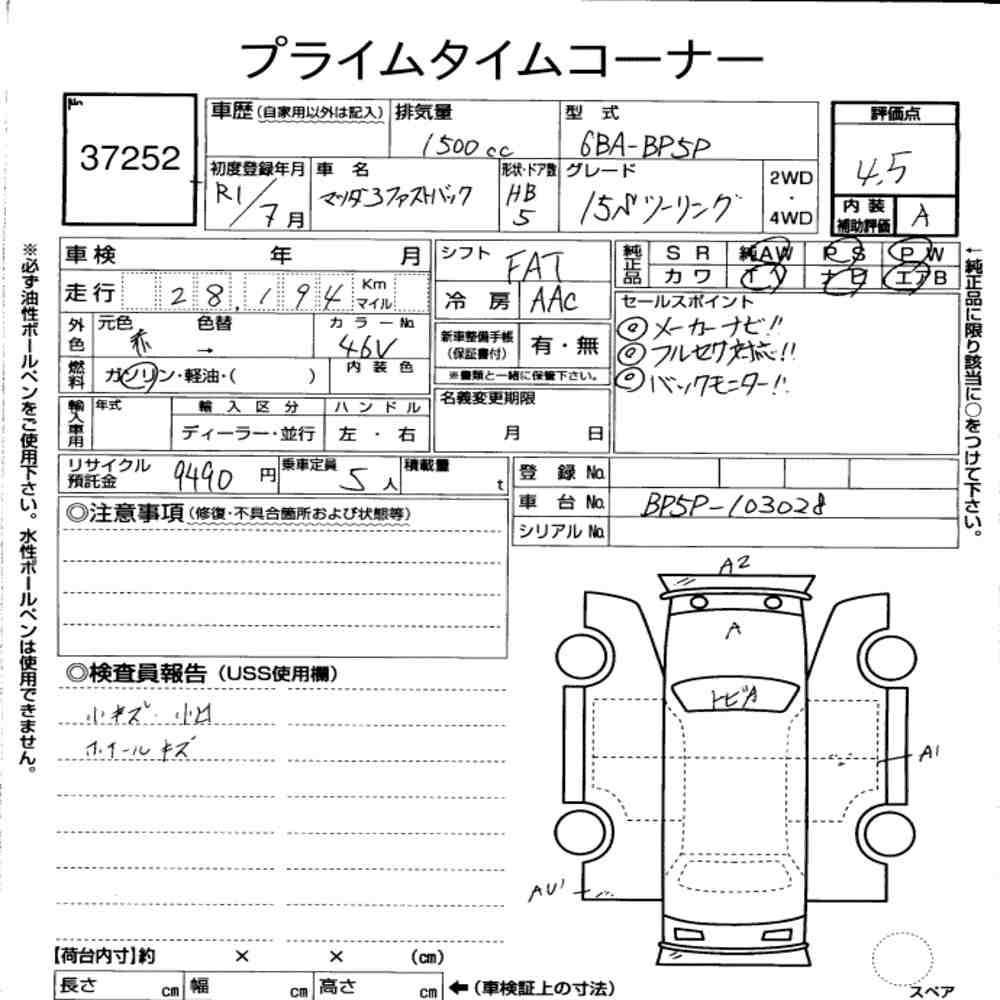 プライムタイムコーナー
No
37252
車歴 (自家用以外は記入) 排気量 型式
1500cc 6BA-BP5P
初度登録年月 車名 形状・ドア数 グレード
R1/7月 マツダ3ファストバック HB 5 15Sツーリング 2WD・4WD
評価点
4.5
内装補助評価 A
車検 年 月
走行 28,194 Km マイル
外色 元色 色替 カラーNo.
赤 → 46V
燃料 ガソリン・軽油・( ) 内装色
輸入車用 年式 輸入区分 ハンドル
ディーラー・並行 左・右
シフト FAT
冷房 AAC
新車整備手帳(保証書付) 有・無
※書類と一緒に保管下さい。
名義変更期限
月 日
純正品 SR 純AW PS PW
カワ TV ナビ エアB
セールスポイント
◎メーカーナビ!!
◎フルセグ対応!!
◎バックモニター!!
リサイクル預託金 9490円 乗車定員 5人 積載量 t
登録No.
車台No. BP5P-103028
シリアルNo.
◎注意事項(修復・不具合箇所および状態等)
◎検査員報告(USS使用欄)
小キズ・小凹
ホイールキズ
A2
A
トビA
A1
AU1
【荷台内寸】約 × × (cm)
長さ cm 幅 cm 高さ cm ←(車検証上の寸法)
スペア
※必ず油性ボールペンをご使用下さい。水性ボールペンは使用できません。
←純正品に限り該当に○をつけて下さい。